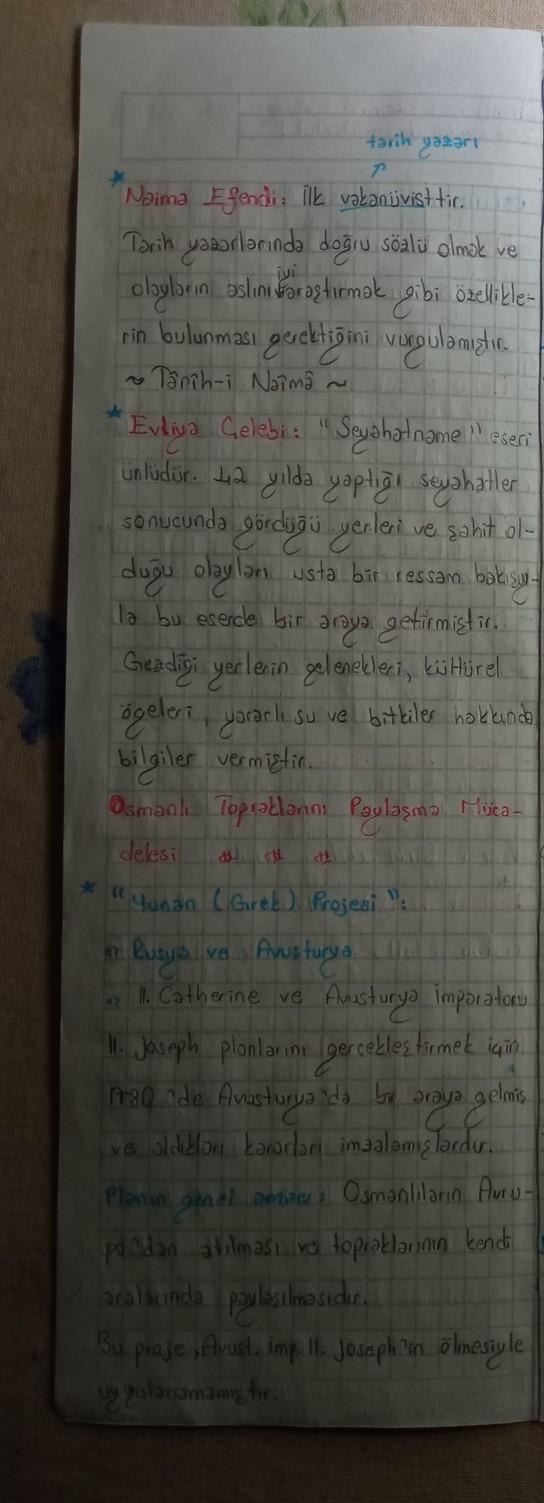 tarih yazarı
* Naima Efendi: İlk vakanüvisttir.
Tarih yazarlarında doğru sözlü olmak ve
olayların aslını iyi araştırmak gibi özellikle-
rin bulunması gerektiğini vurgulamıştır.
~ Târih-i Naîmâ ~
* Evliya Çelebi: "Seyahatname" eseri
ünlüdür. 42 yılda yaptığı seyahatler
sonucunda gördüğü yerleri ve şahit ol-
duğu olayları usta bir ressam bakışıy-
la bu eserde bir araya getirmiştir.
Gezdiği yerlerin gelenekleri, kültürel
ögeleri, yararlı su ve bitkiler hakkında
bilgiler vermiştir.
Osmanlı Topraklarını Paylaşma Müca-
delesi
* "Yunan (Grek) Projesi":
Rusya ve Avusturya
II. Catherine ve Avusturya imparatoru
II. Joseph planlarını gerçekleştirmek için
1780'de Avusturya'da bir araya gelmiş
ve aldıkları kararları imzalamışlardır.
Planın genel amacı: Osmanlıların Avru-
pa'dan atılması ve topraklarının kendi
aralarında paylaşılmasıdır.
Bu proje, Avust. imp. II. Joseph'in ölmesiyle
uygulanamamıştır.